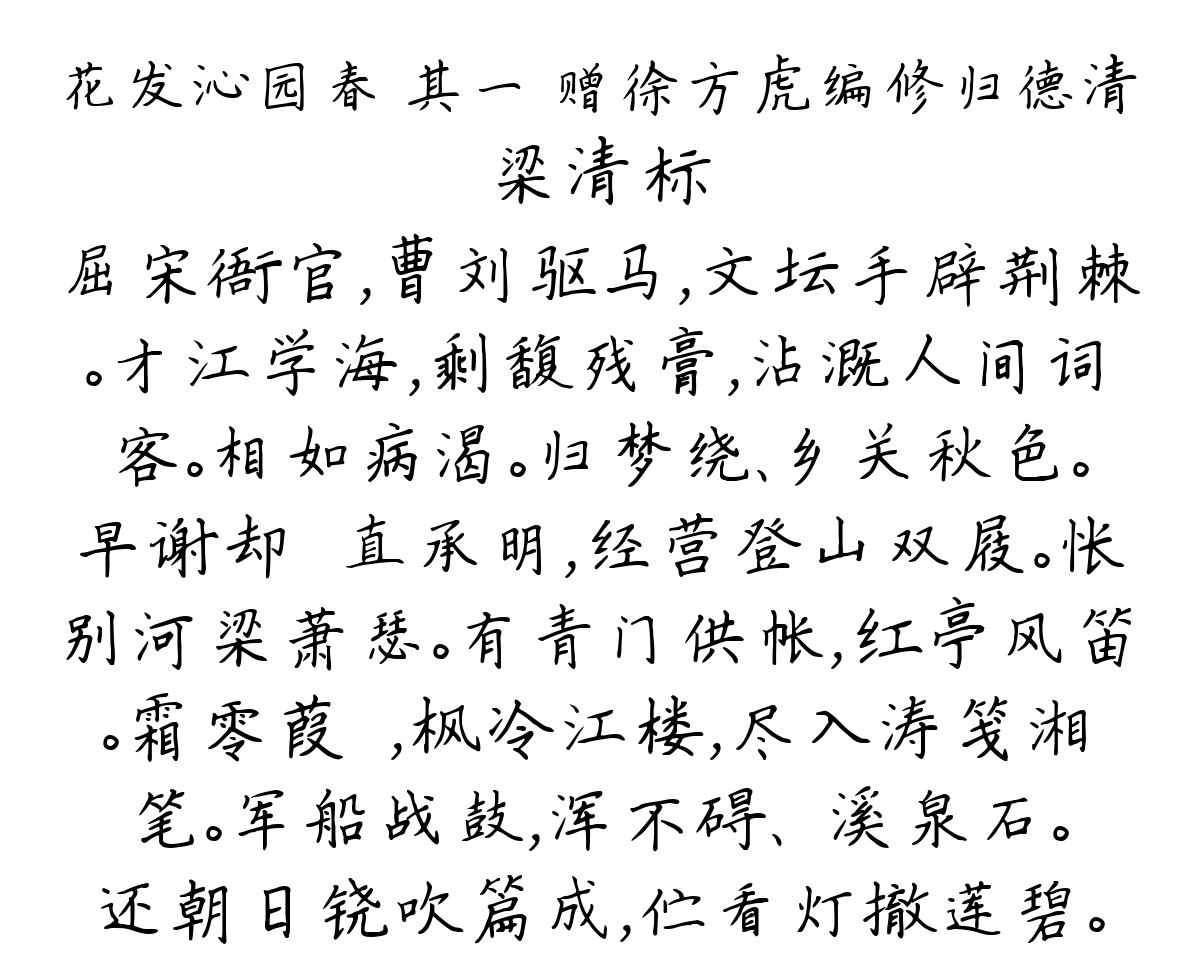 花发沁园春 其一 赠徐方虎编修归德清
梁清标
屈宋衙官,曹刘驱马,文坛手辟荆棘
。才江学海,剩馥残膏,沾溉人间词
客。相如病渴。归梦绕、乡关秋色。
早谢却 直承明,经营登山双屐。怅
别河梁萧瑟。有青门供帐,红亭风笛
。霜零葭 ,枫冷江楼,尽入涛笺湘
笔。军船战鼓,浑不碍、 溪泉石。
还朝日铙吹篇成,伫看灯撤莲碧。